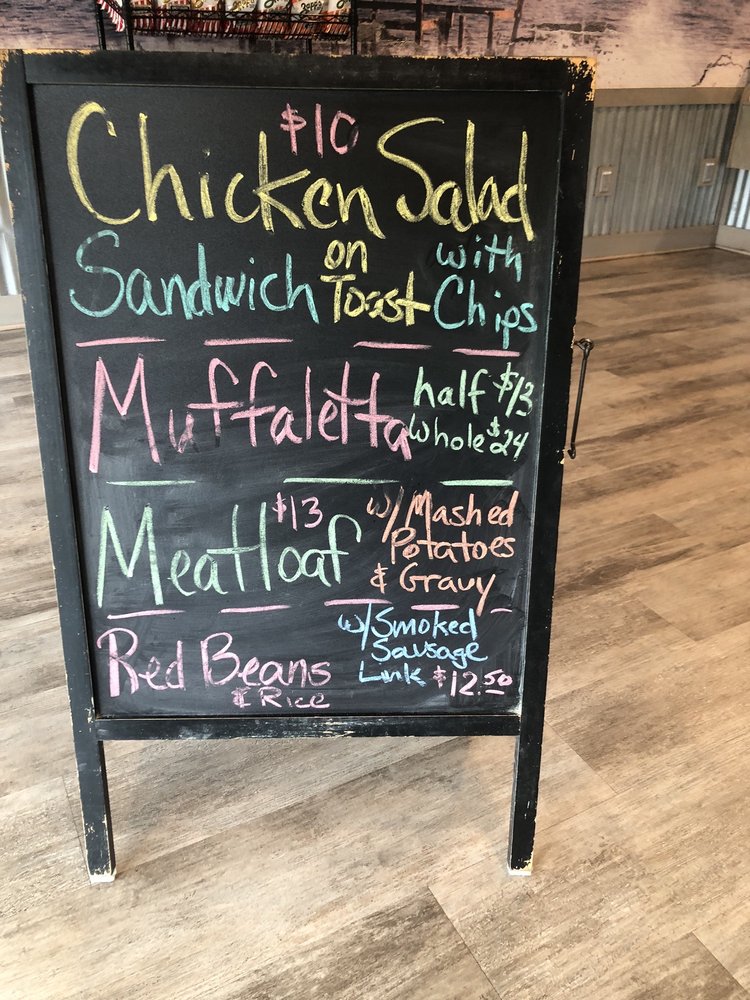 $10
Chicken Salad
Sandwich on Toast with Chips
Muffaletta half $13
whole $24
Meatloaf $13 w/Mashed
Potatoes
& Gravy
Red Beans
& Rice
w/Smoked
Sausage
Link $12.50